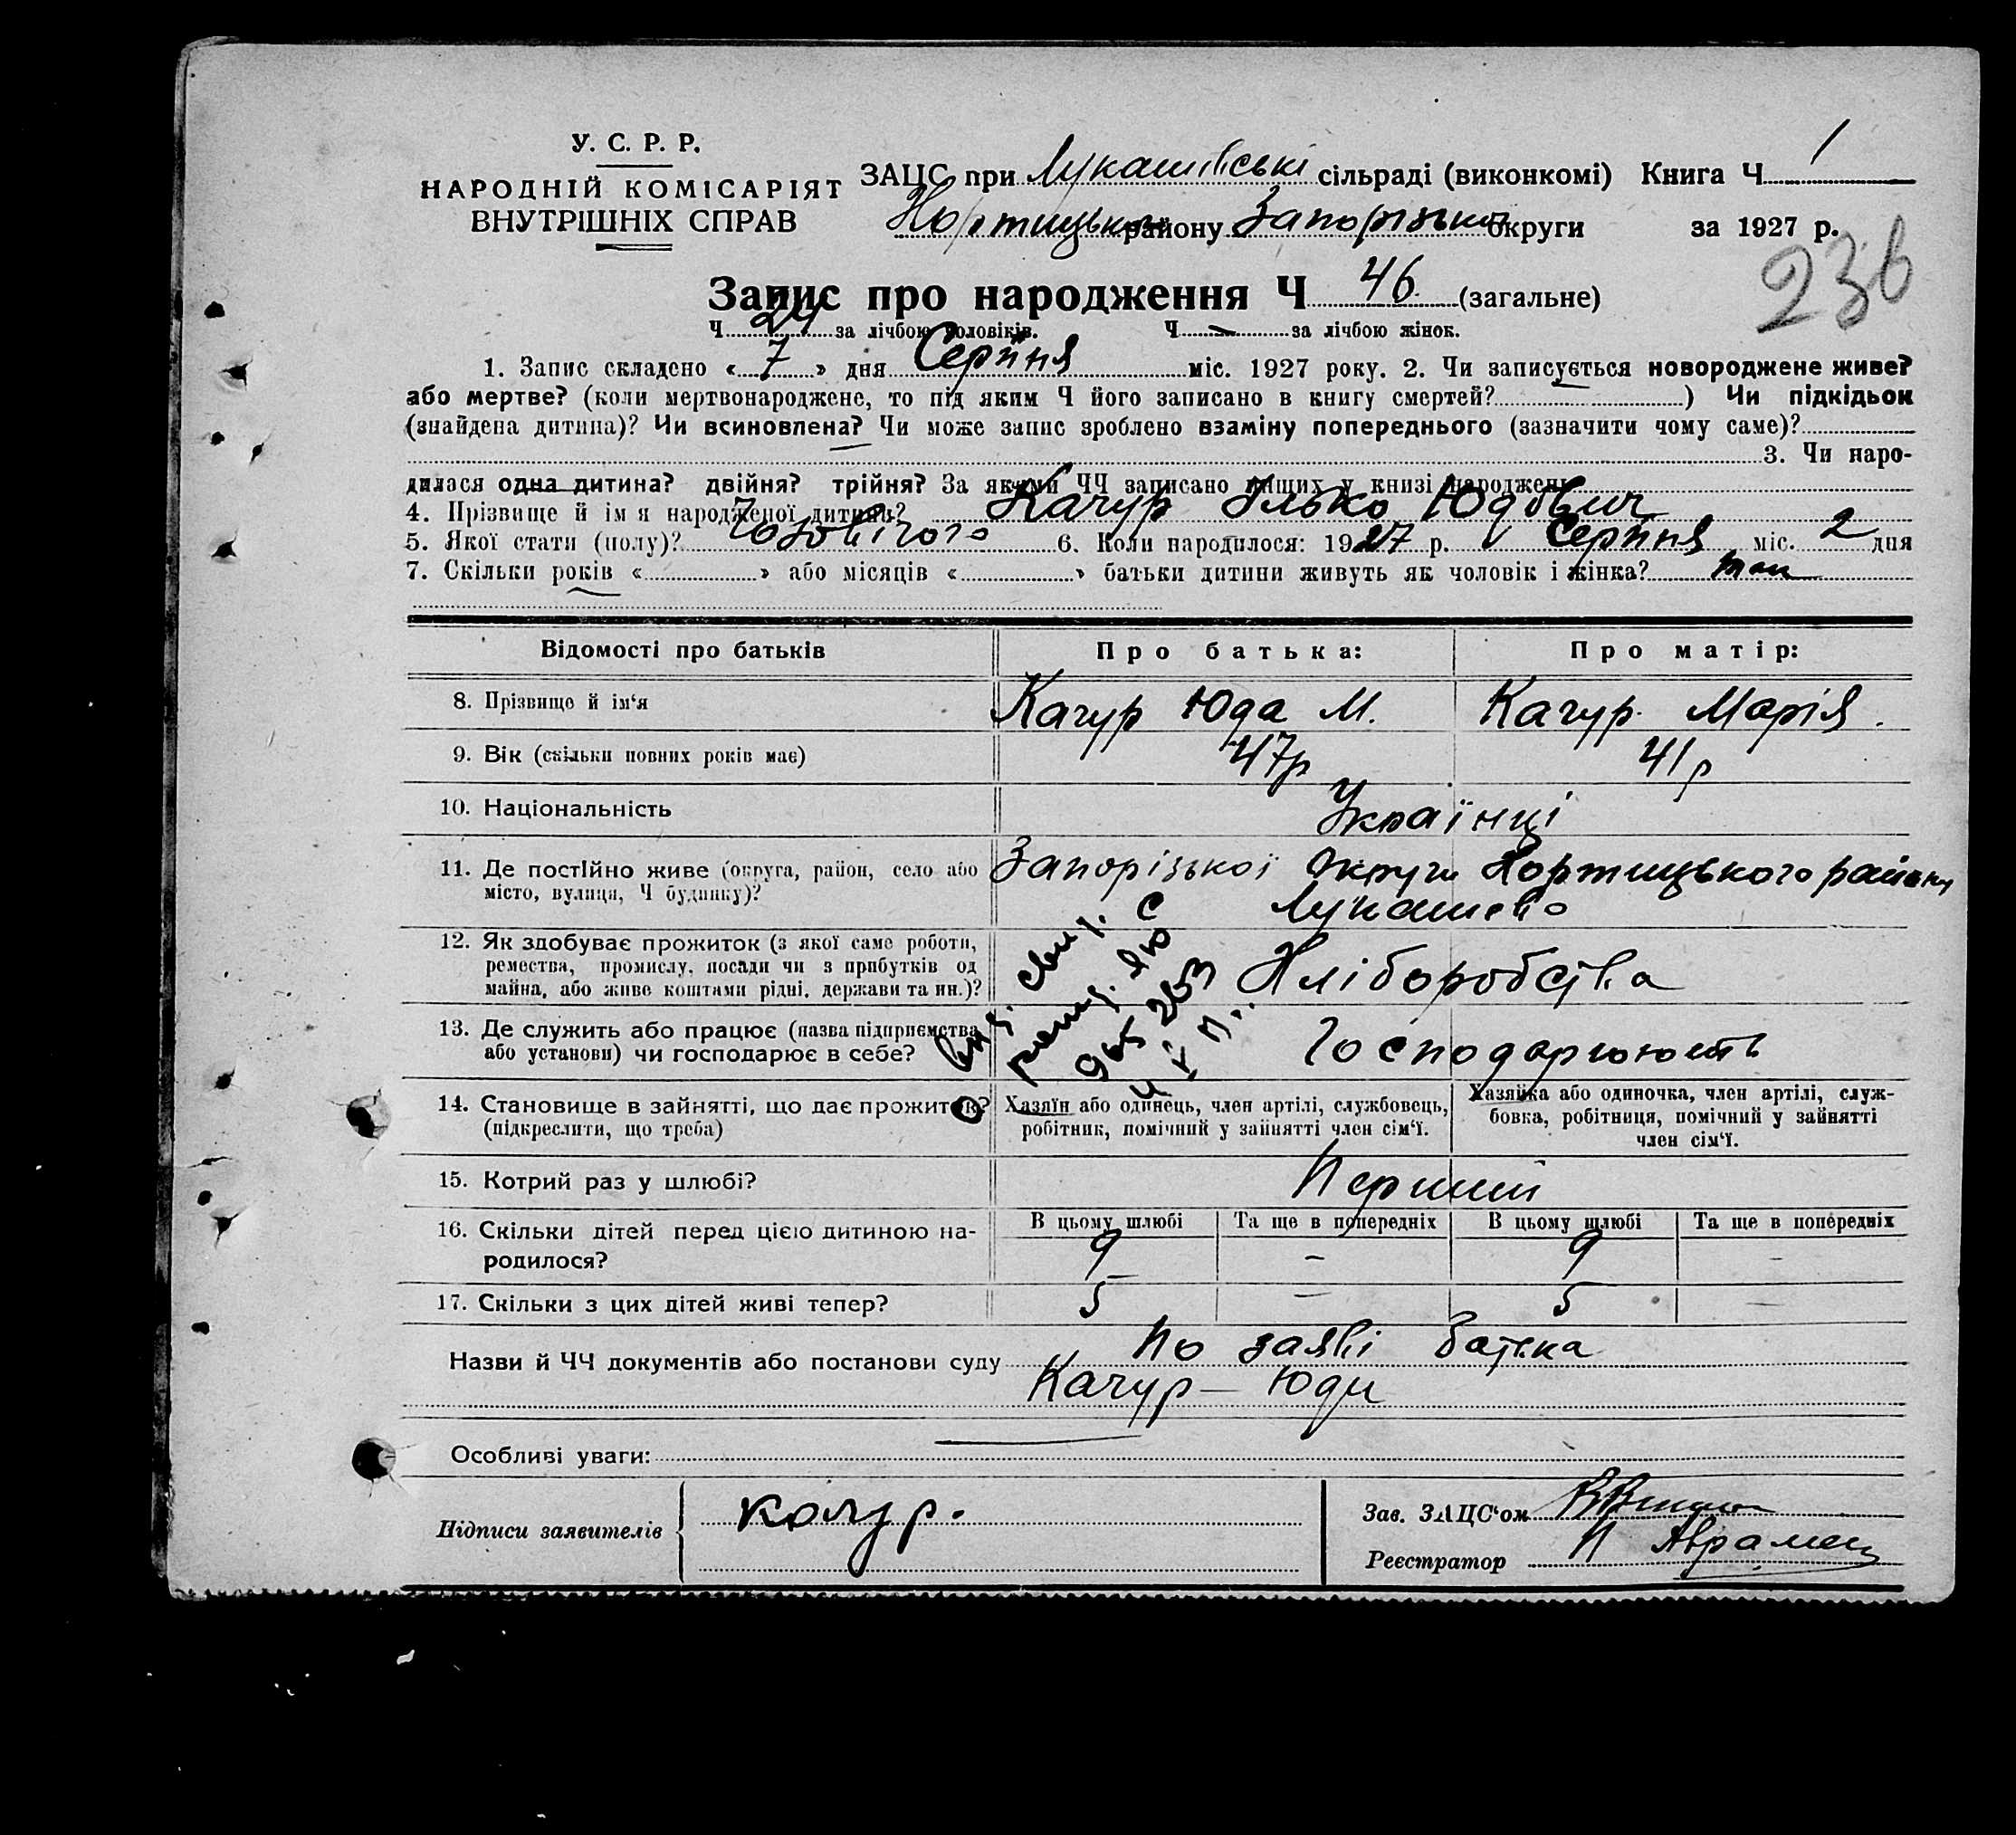 У. С. Р. Р.
НАРОДНІЙ КОМІСАРІЯТ
ВНУТРІШНІХ СПРАВ
ЗАЦС при Лукашівські сільраді (виконкомі) Книга Ч 1
Хортицького району Запорізької округи за 1927 р.
236
Запис про народження Ч 46 (загальне)
Ч 24 за лічбою чоловіків. Ч — за лічбою жінок.
1. Запис складено « 7 » дня Серпня міс. 1927 року. 2. Чи записується новороджене живе?
або мертве? (коли мертвонароджене, то під яким Ч його записано в книгу смертей? ) Чи підкідьок
(знайдена дитина)? Чи всиновлена? Чи може запис зроблено взаміну попереднього (зазначити чому саме)?
3. Чи наро-
дилася одна дитина? двійня? трійня? За якими ЧЧ записано инших у книзі народжень
4. Прізвище й ім я народженої дитини? Качур Ілько Юдович
5. Якої стати (полу)? Чозовічого 6. Коли народилося: 1927 р. Серпня міс. 2 дня
7. Скільки років « » або місяців « » батьки дитини живуть як чоловік і жінка? так
Відомості про батьків Про батька: Про матір:
8. Прізвище й ім‘я Качур Юда М. Качур Марія.
9. Вік (скільки повних років має) 47р 41р
10. Національність Українці
11. Де постійно живе (округа, район, село або Запорізької округи Хортицького району
місто, вулиця, Ч будинку)? Лукашево
12. Як здобуває прожиток (з якої саме роботи,
ремества, промислу, посади чи з прибутків од
майна, або живе коштами рідні, держави та ин.)? Хліборобства
13. Де служить або працює (назва підприємства
або установи) чи господарює в себе? Господарюють
14. Становище в зайнятті, що дає прожиток? Хазяїн або одинець, член артілі, службовець, Хазяйка або одиночка, член артілі, служ-
(підкреслити, що треба) робітник, помічний у зайнятті член сім‘ї. бовка, робітниця, помічний у зайнятті
член сім‘ї.
15. Котрий раз у шлюбі? Перший
16. Скільки дітей перед цією дитиною на- В цьому шлюбі Та ще в попередніх В цьому шлюбі Та ще в попередніх
родилося? 9 — 9 —
17. Скільки з цих дітей живі тепер? 5 — 5 —
Назви й ЧЧ документів або постанови суду По заяві батька
Качур — Юди
Особливі уваги:
Підписи заявителів качур. Зав. ЗАЦС‘ом
Реєстратор П Аврамец